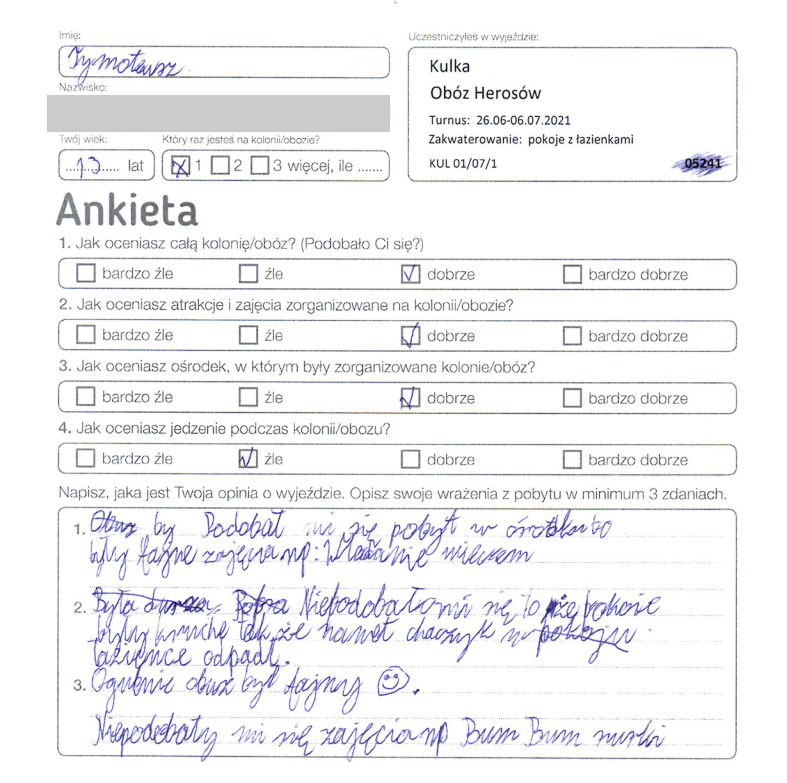 Imię:
Tymoteusz
Nazwisko:
Twój wiek:
13 lat
Który raz jesteś na kolonii/obozie?
1 2 3 więcej, ile .......
Uczestniczyłeś w wyjeździe:
Kulka
Obóz Herosów
Turnus: 26.06-06.07.2021
Zakwaterowanie: pokoje z łazienkami
KUL 01/07/1 05241
Ankieta
1. Jak oceniasz całą kolonię/obóz? (Podobało Ci się?)
bardzo źle źle dobrze bardzo dobrze
2. Jak oceniasz atrakcje i zajęcia zorganizowane na kolonii/obozie?
bardzo źle źle dobrze bardzo dobrze
3. Jak oceniasz ośrodek, w którym były zorganizowane kolonie/obóz?
bardzo źle źle dobrze bardzo dobrze
4. Jak oceniasz jedzenie podczas kolonii/obozu?
bardzo źle źle dobrze bardzo dobrze
Napisz, jaka jest Twoja opinia o wyjeździe. Opisz swoje wrażenia z pobytu w minimum 3 zdaniach.
1. Obuz by Podobał mi się pobyt w bo
były fajne zajęcia np: Władanie mieczem
2. Była Niepodobało mi się to że pokoje
były kruche tak że nawet haczyk w pokoju
łazience odpadł.
3. Ogulnie obuz był fajny ☺.
Niepodobały mi się zajęcia np Bum Bum